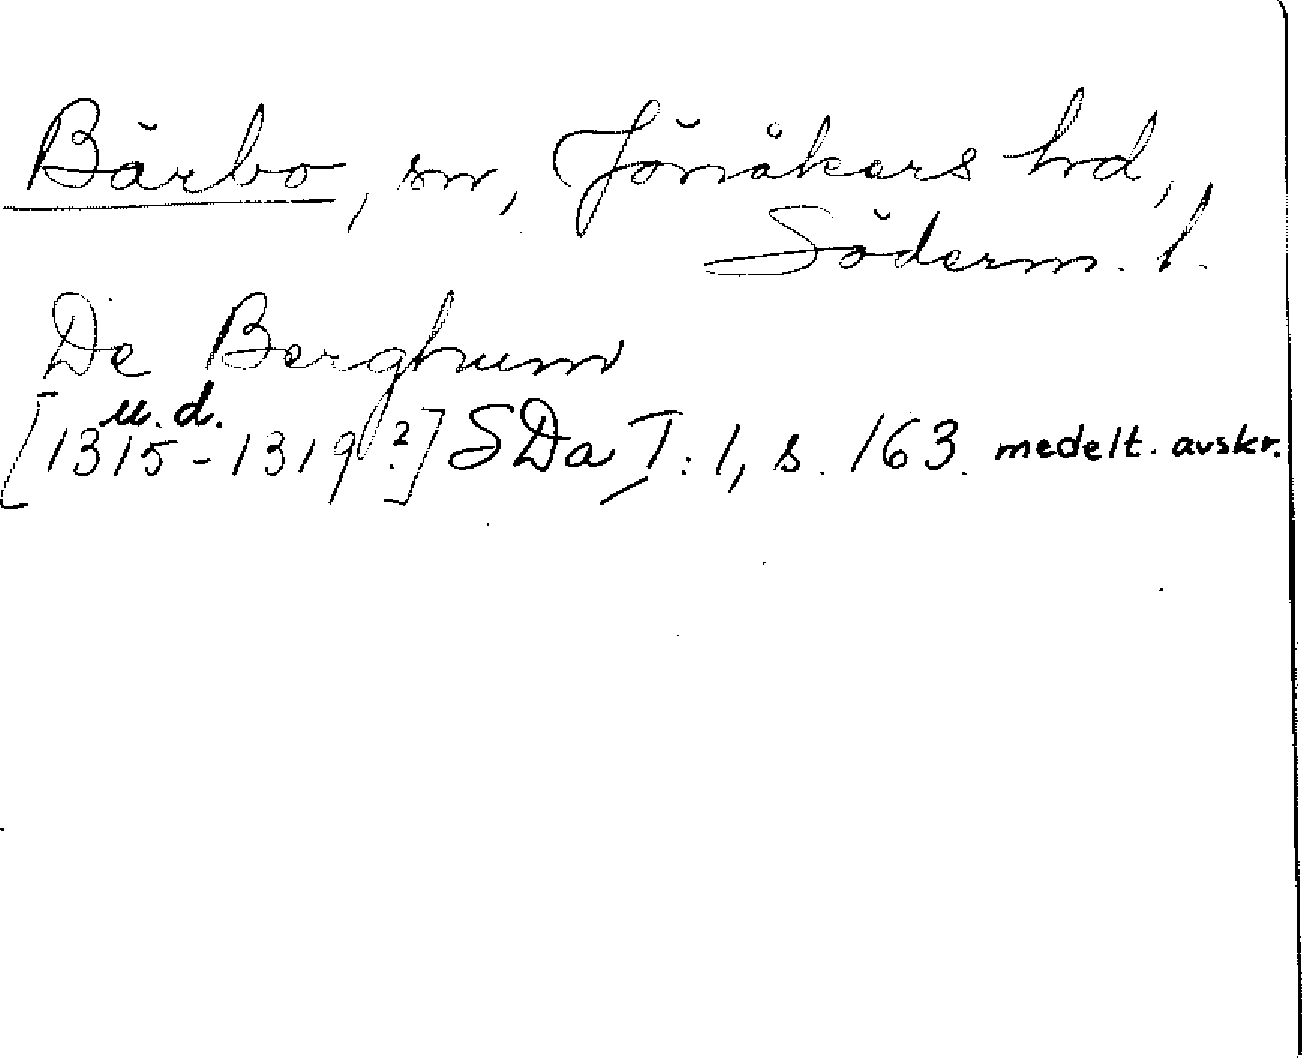 Bärbo, sn, Jönåkers hd,
Söderm. l.
De Berghum
u.d.
[1315-1319?] SDa I:1, s. 163. medelt. avskr.